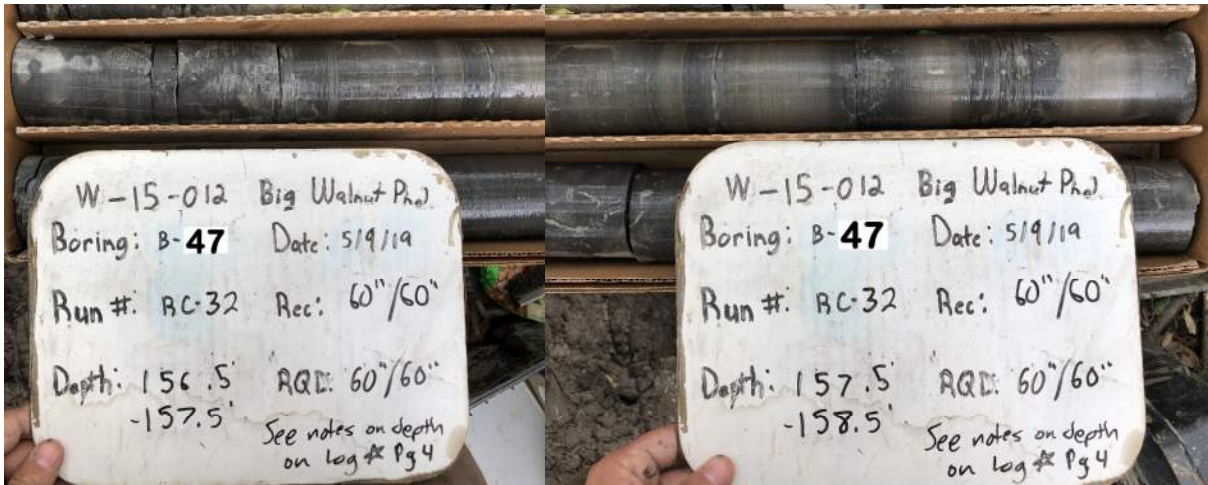 W-15-012 Big Walnut Ph2
Boring: B-47 Date: 5/9/19
Run #: RC-32 Rec: 60"/60"
Depth: 156.5' RQD: 60"/60"
-157.5'
See notes on depth
on log ☆ Pg 4
W-15-012 Big Walnut Ph2
Boring: B-47 Date: 5/9/19
Run #: RC-32 Rec: 60"/60"
Depth: 157.5' RQD: 60"/60"
-158.5'
See notes on depth
on log ☆ Pg 4